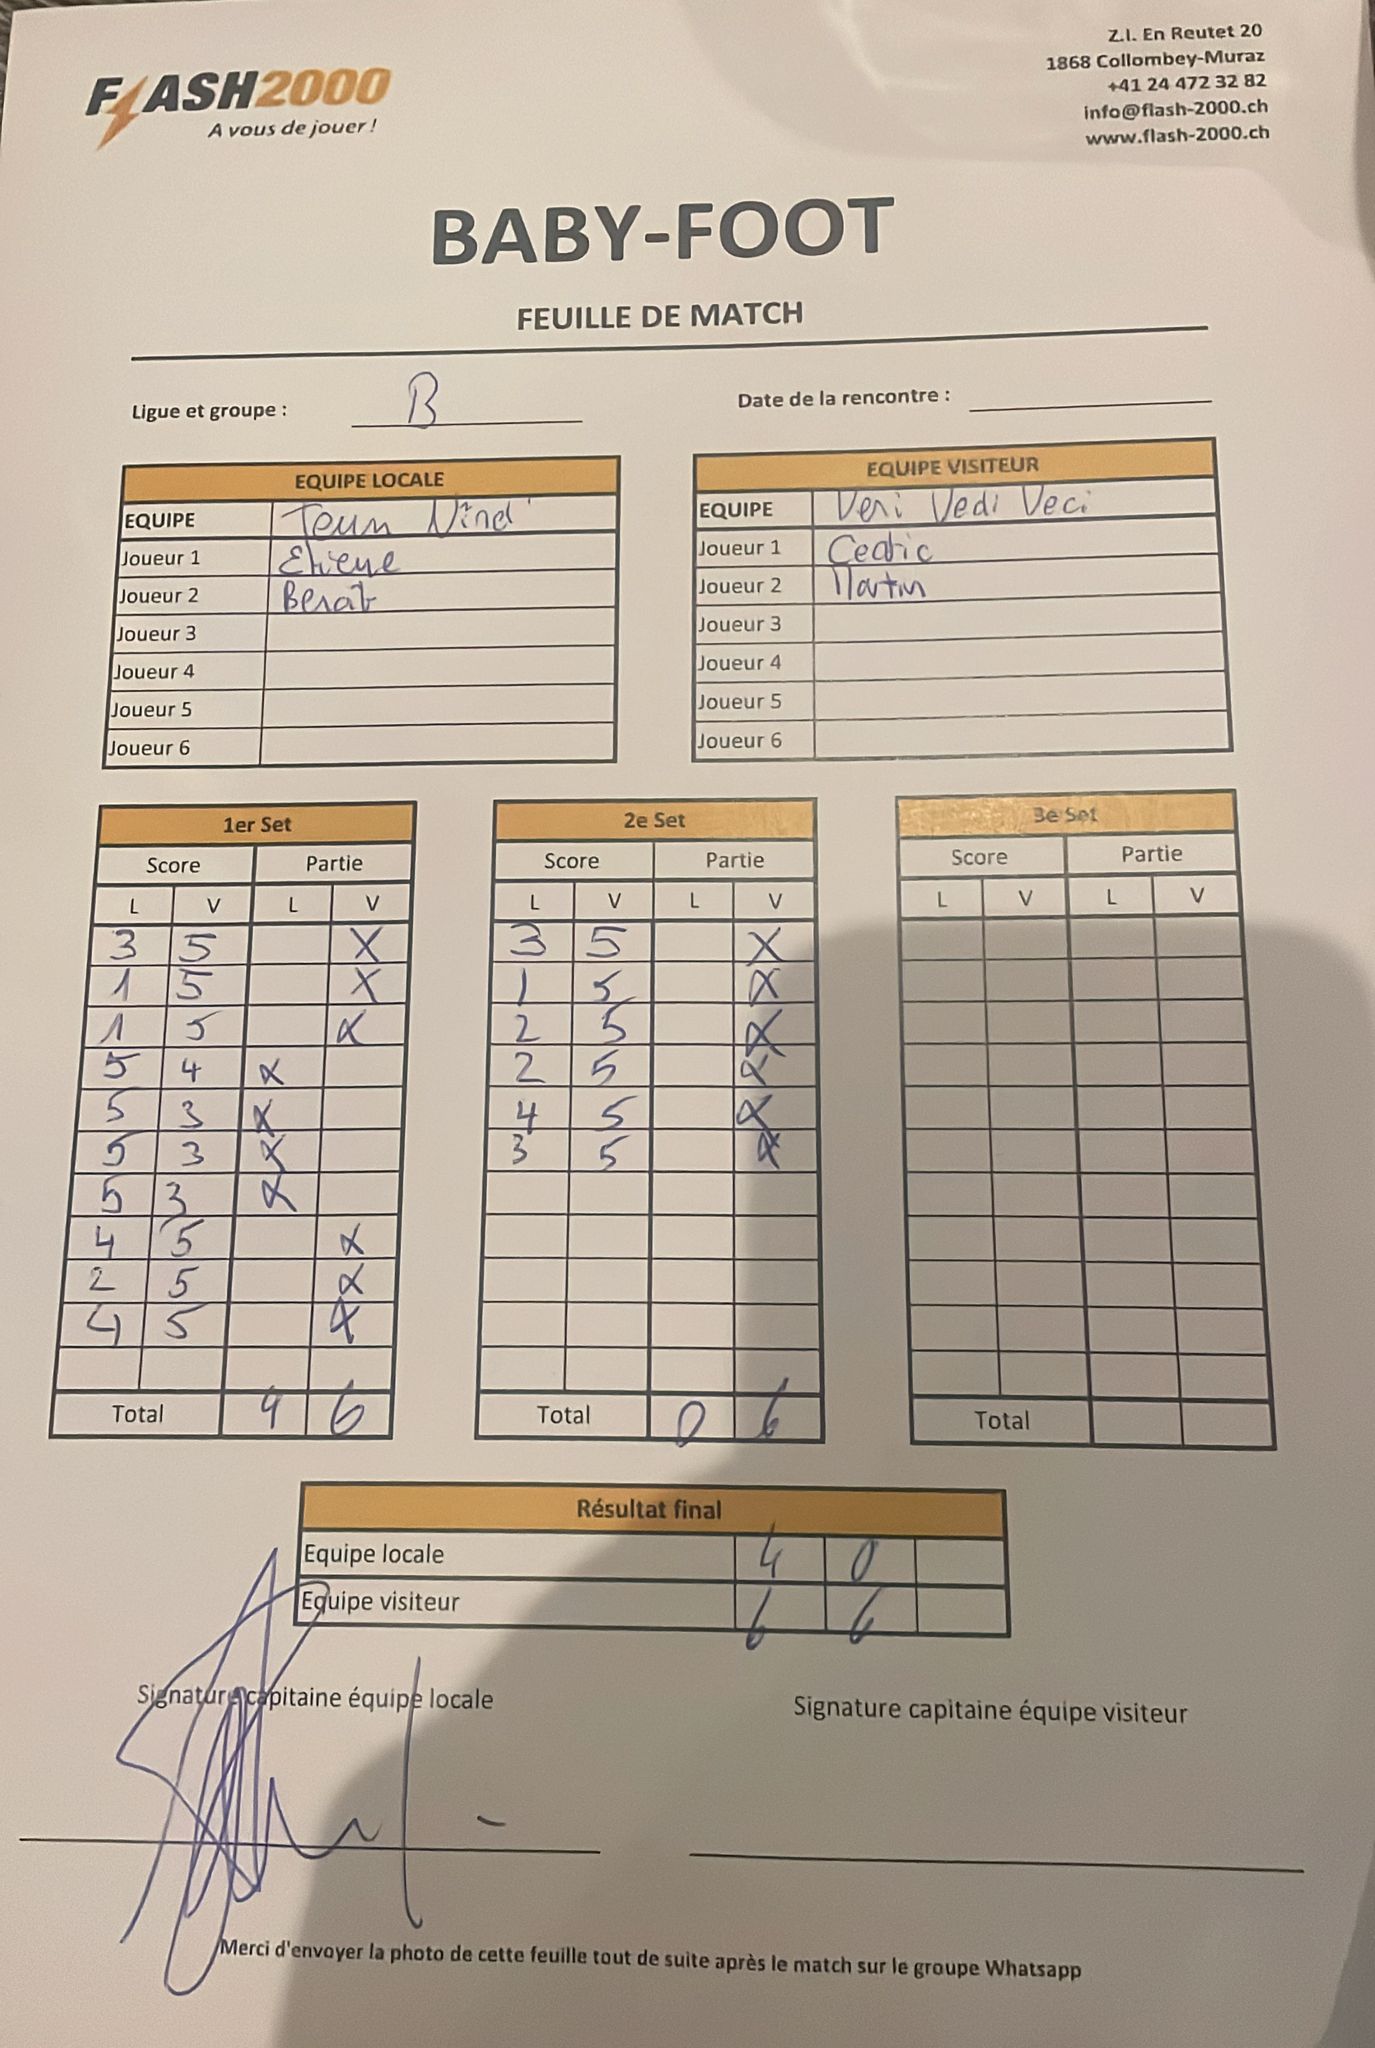 FLASH2000
A vous de jouer !
Z.I. En Reutet 20
1868 Collombey-Muraz
+41 24 472 32 82
info@flash-2000.ch
www.flash-2000.ch
BABY-FOOT
FEUILLE DE MATCH
Ligue et groupe : B
Date de la rencontre :
EQUIPE LOCALE
EQUIPE
Joueur 1
Joueur 2 Berat
Joueur 3
Joueur 4
Joueur 5
Joueur 6
EQUIPE VISITEUR
EQUIPE Veni Vedi Veci
Joueur 1 Cedric
Joueur 2 Martin
Joueur 3
Joueur 4
Joueur 5
Joueur 6
1er Set
Score Partie
L V L V
3 5 X
1 5 X
1 5 X
5 4 X
5 3 X
5 3 X
5 3 X
4 5 X
2 5 X
4 5 X
Total 4 6
2e Set
Score Partie
L V L V
3 5 X
1 5 X
2 5 X
2 5 X
4 5 X
3 5 X
Total 0 6
3e Set
Score Partie
L V L V
Total
Résultat final
Equipe locale 4 0
Equipe visiteur 6 6
Signature capitaine équipe locale
Signature capitaine équipe visiteur
Merci d'envoyer la photo de cette feuille tout de suite après le match sur le groupe Whatsapp